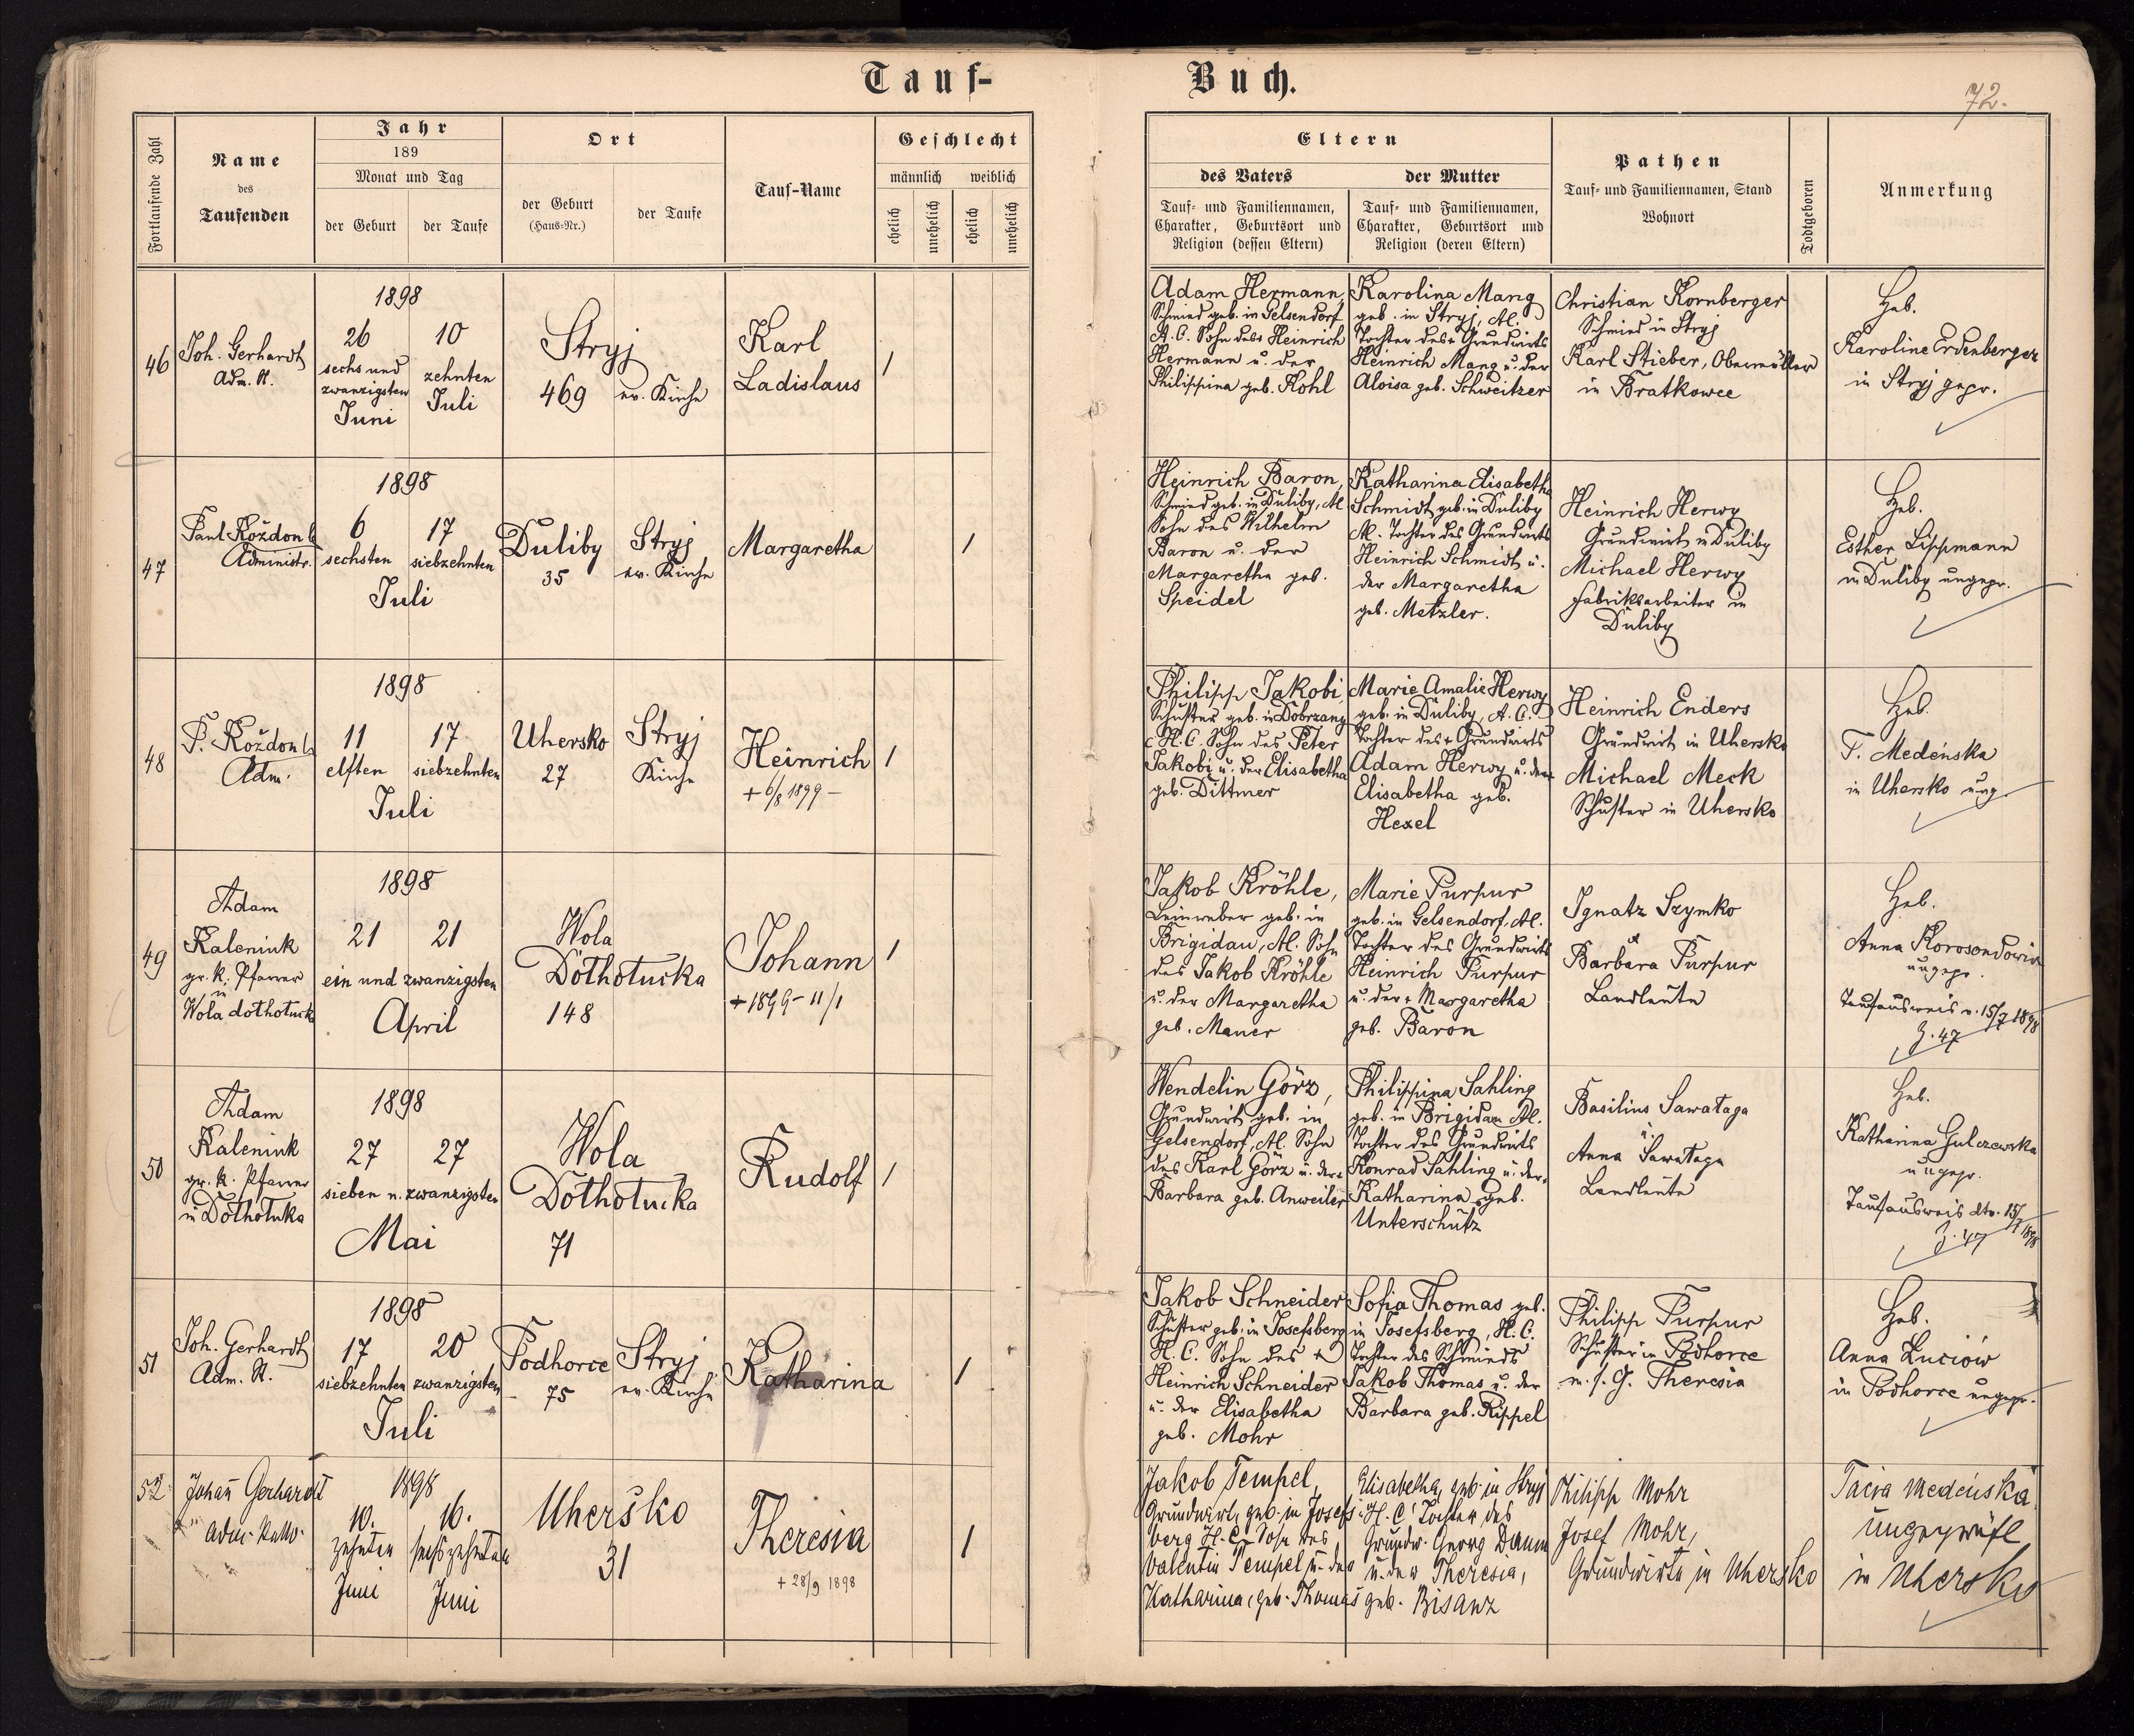 Tauf-
Buch.
72.
Fortlaufende Zahl
Name
des
Taufenden
Jahr
189
Monat und Tag
der Geburt
der Taufe
Ort
der Geburt
(Haus-Nr.)
der Taufe
Tauf-Name
Geschlecht
männlich
weiblich
ehelich
unehelich
ehelich
unehelich
Eltern
des Vaters
Tauf- und Familiennamen,
Charakter, Geburtsort und
Religion (dessen Eltern)
der Mutter
Tauf- und Familiennamen,
Charakter, Geburtsort und
Religion (deren Eltern)
Pathen
Tauf- und Familiennamen, Stand
Wohnort
Todtgeboren
Anmerkung
46
Joh. Gerhardt
Adm. K.
1898
26
sechs und
zwanzigsten
Juni
10
zehnten
Juli
Stryj
469
ev. Kirche
Karl
Ladislaus
1
Adam Hermann,
Schmied geb. in Gelsendorf
A. C. Sohn des Heinrich
Hermann u. der
Philippina geb. Kohl
Karolina Mang
geb. in Stryj, A.C.
Tochter des + Grundwirts
Heinrich Mang u. der
Aloisa geb. Schweitzer
Christian Kornberger
Schmied in Stryj
Karl Stieber, Obermüller
in Bratkowce
Heb.
Karoline Erdenberger
in Stryj gepr.
47
Paul Koždon
Administr.
1898
6
sechsten
17
siebzehnten
Juli
Duliby
35
Stryj
ev. Kirche
Margaretha
1
Heinrich Baron,
Schmied geb. in Duliby, AC
Sohn des Wilhelm
Baron u. der
Margaretha geb.
Speidel
Katharina Elisabetha
Schmidt geb. in Duliby
AC. Tochter des Grundwirts
Heinrich Schmidt u.
der Margaretha
geb. Metzler.
Heinrich Herwy
Grundwirt in Duliby
Michael Herwy
Fabriksarbeiter in
Duliby
Heb.
Esther Lippmann
in Duliby ungepr.
48
P. Koždon
Adm.
1898
11
elften
17
siebzehnten
Juli
Uhersko
27
Stryj
Kirche
Heinrich
+ 6/8 1899 -
1
Philipp Jakobi,
Schuster geb. in Dobrzany
H. C. Sohn des Peter
Jakobi u. der Elisabetha
geb. Dittmer
Marie Amalie Herwy
geb. in Duliby, A. C.
Tochter des + Grundwirts
Adam Herwy u. der
Elisabetha geb.
Hexel
Heinrich Enders
Grundwirt in Uhersko
Michael Meck
Schuster in Uhersko
Heb.
T. Medeńska
in Uhersko ung.
49
Adam
Kaleniuk
gr. k. Pfarrer
in
Wola dothotucka
1898
21
21
ein und zwanzigsten
April
Wola
Dothotucka
148
Johann
+ 1899 - 11/1
1
Jakob Kröhle,
Leinweber geb. in
Brigidau, AC. Sohn
des Jakob Kröhle
u. der Margaretha
geb. Mauer
Marie Purpur
geb. in Gelsendorf, AC.
Tochter des Grundwirts
Heinrich Purpur
u. der + Margaretha
geb. Baron
Ignatz Szymko
et
Barbara Purpur
Landleute
Heb.
Anna
ungepr.
Taufausweis v. 15/7 1898
Z. 47
50
Adam
Kaleniuk
gr. k. Pfarrer
in Dothotuka
1898
27
27
sieben u. zwanzigsten
Mai
Wola
Dothotucka
71
Rudolf
1
Wendelin Görz,
Grundwirt geb. in
Gelsendorf, AC. Sohn
des Karl Görz u. der +
Barbara geb. Anweiler
Philippina Sahling
geb. in Brigidau AC.
Tochter des Grundwirts
Konrad Sahling u. der +
Katharina geb.
Unterschütz
Basilius Sawataga
u.
Anna Sawataga
Landleute
Heb.
Katharina Gulczewska
ungepr.
Taufausweis dto. 15/7 1898
Z. 47
51
Joh. Gerhardt
Adm. K.
1898
17
siebzehnten
20
zwanzigsten
Juli
Podhorce
75
Stryj
ev. Kirche
Katharina
1
Jakob Schneider
Schuster geb. in Josefsberg
H. C. Sohn des +
Heinrich Schneider
u. der Elisabetha
geb. Mohr
Sofia Thomas geb.
in Josefsberg, H. C.
Tochter des Schmieds
Jakob Thomas u. der
Barbara geb. Rippel
Philipp Purpur
Schuster in Podhorce
m. s. G. Theresia
Heb.
Anna Łuciów
in Podhorce ungepr.
52
Johañ Gerhardt
Adm.
1898
10.
zehnten
Juni
16.
sechszehnten
Juni
Uhersko
31
Theresia
+ 28/9 1898
1
Jakob Tempel,
Grundwirt, geb. in Josefs-
berg H. C. Sohn des
Valentin Tempel u. der
Katharina, geb. Thomas
Elisabetha, geb. in Stryj
H. C. Tochter des
Grundw. Georg Daum
u. der Theresia,
geb. Bisanz
Philipp Mohr
Josef Mohr,
Grundwirte in Uhersko
Tacia Medeńska
ungeprüft
in Uhersko